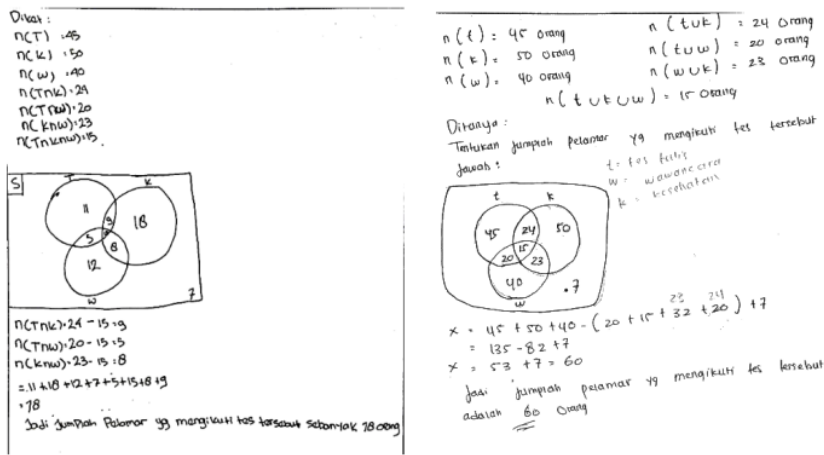 Diket :
n(T) : 45
n(K) : 50
n(w) : 40
n(T∩K) : 24
n(T∩w) : 20
n(K∩w) : 23
n(T∩K∩w) : 15
S
T
K
11
9
18
5
8
12
w
7
n(T∩K) : 24 - 15 : 9
n(T∩w) : 20 - 15 : 5
n(K∩w) : 23 - 15 : 8
= 11 + 18 + 12 + 7 + 5 + 15 + 8 + 9
= 78
Jadi Jumplah Pelamar yg mengikuti tes tersebut sebanyak 78 orang
n(t) = 45 orang
n(k) = 50 orang
n(w) = 40 orang
n(t∪k) = 24 orang
n(t∪w) = 20 orang
n(w∪k) = 23 orang
n(t∪k∪w) = 15 orang
Ditanya :
Tentukan jumplah pelamar yg mengikuti tes tersebut
Jawab :
t = tes tulis
w = wawancara
k = kesehatan
t
k
45
24
50
15
20
23
40
w
. 7
23 24
x = 45 + 50 + 40 - (20 + 15 + 32 + 20) + 7
= 135 - 82 + 7
x = 53 + 7 = 60
Jadi jumplah pelamar yg mengikuti tes tersebut
adalah 60 orang